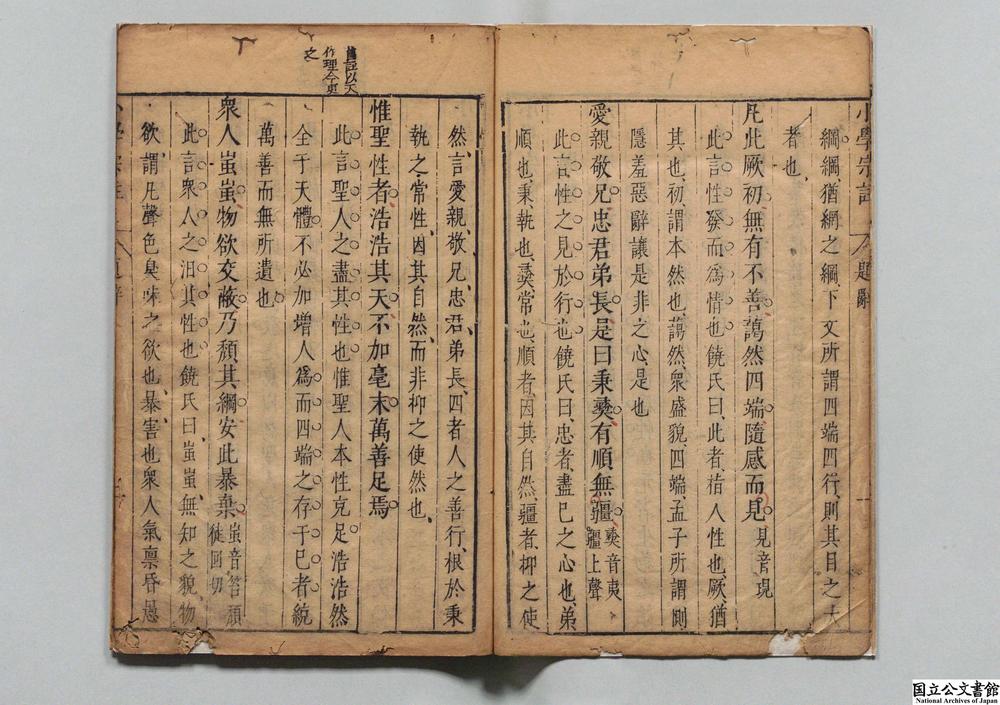 小學宗註 題辭
綱綱猶網之綱下文所謂四端四行則其目之大
者也
凡此厥初無有不善藹然四端隨感而見見音現
此言性發而爲情也饒氏曰此者指人性也厥猶
其也初謂本然也藹然衆盛貌四端孟子所謂惻
隱羞惡辭讓是非之心是也
愛親敬兄忠君弟長是曰秉彝有順無彊彝音夷彊上聲
此言性之見於行也饒氏曰忠者盡己之心也弟
順也秉執也彝常也順者因其自然彊者抑之使
然言愛親敬兄忠君弟長四者人之善行根於秉
執之常性因其自然而非抑之使然也
舊註以天
作理今更
之
惟聖性者浩浩其天不加毫末萬善足焉
此言聖人之盡其性也惟聖人本性克足浩浩然
全于天體不必加增人爲而四端之存于己者統
萬善而無所遺也
衆人蚩蚩物欲交蔽乃頹其綱安此暴棄蚩音答頹徒回切
此言衆人之汨其性也饒氏曰蚩蚩無知之貌物
欲謂凡聲色臭味之欲也暴害也衆人氣禀昏愚
国立公文書館
National Archives of Japan